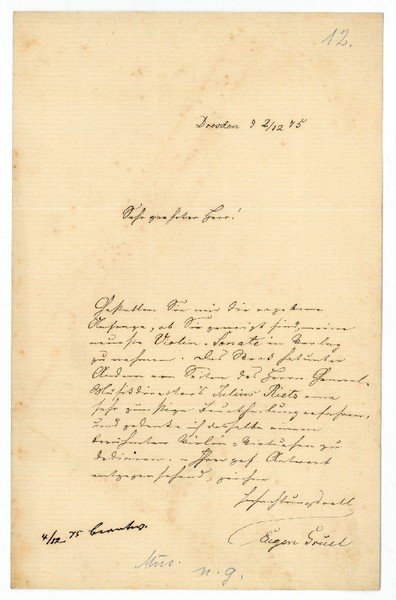 12.
Dresden d 2/12 75
Sehr geehrter Herr!
Gestatten Sie mir die ergebene
Anfrage, ob Sie geneigt sind, meine
neueste Violin-Sonate in Verlag
zu nehmen. Das Werk hat unter
Andern von Seiten des Herrn General-
Musikdirector's Julius Rietz eine
sehr günstige Beurtheilung erfahren,
und gedenke ich dasselbe einem
berühmten Violin-Virtuosen zu
dediciren. Ihrer gef. Antwort
entgegensehend, zeichne
Hochachtungsvoll
Eugen
4/12 75 beantw.
Mus.
n. g.